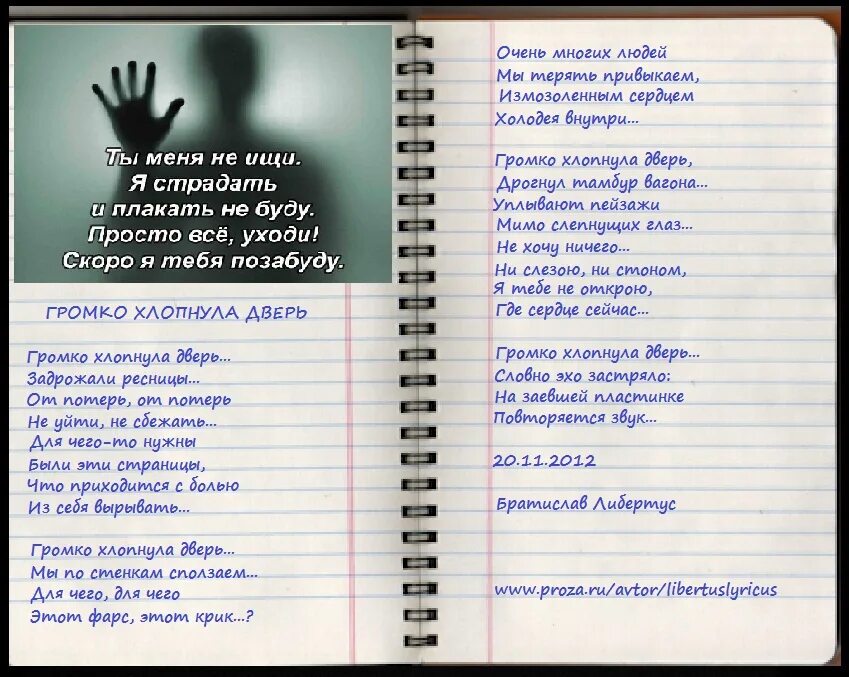 Ты меня не ищи.
Я страдать
и плакать не буду.
Просто всё, уходи!
Скоро я тебя позабуду.
ГРОМКО ХЛОПНУЛА ДВЕРЬ
Громко хлопнула дверь...
Задрожали ресницы...
От потерь, от потерь
Не уйти, не сбежать...
Для чего-то нужны
Были эти страницы,
Что приходится с болью
Из себя вырывать...
Громко хлопнула дверь...
Мы по стенкам сползаем...
Для чего, для чего
Этот фарс, этот крик...?
Очень многих людей
Мы терять привыкаем,
Измозоленным сердцем
Холодея внутри...
Громко хлопнула дверь,
Дрогнул тамбур вагона...
Уплывают пейзажи
Мимо слепнущих глаз...
Не хочу ничего...
Ни слезою, ни стоном,
Я тебе не открою,
Где сердце сейчас...
Громко хлопнула дверь...
Словно эхо застряло:
На заевшей пластинке
Повторяется звук...
20.11.2012
Братислав Либертус
www.proza.ru/avtor/libertuslyricus